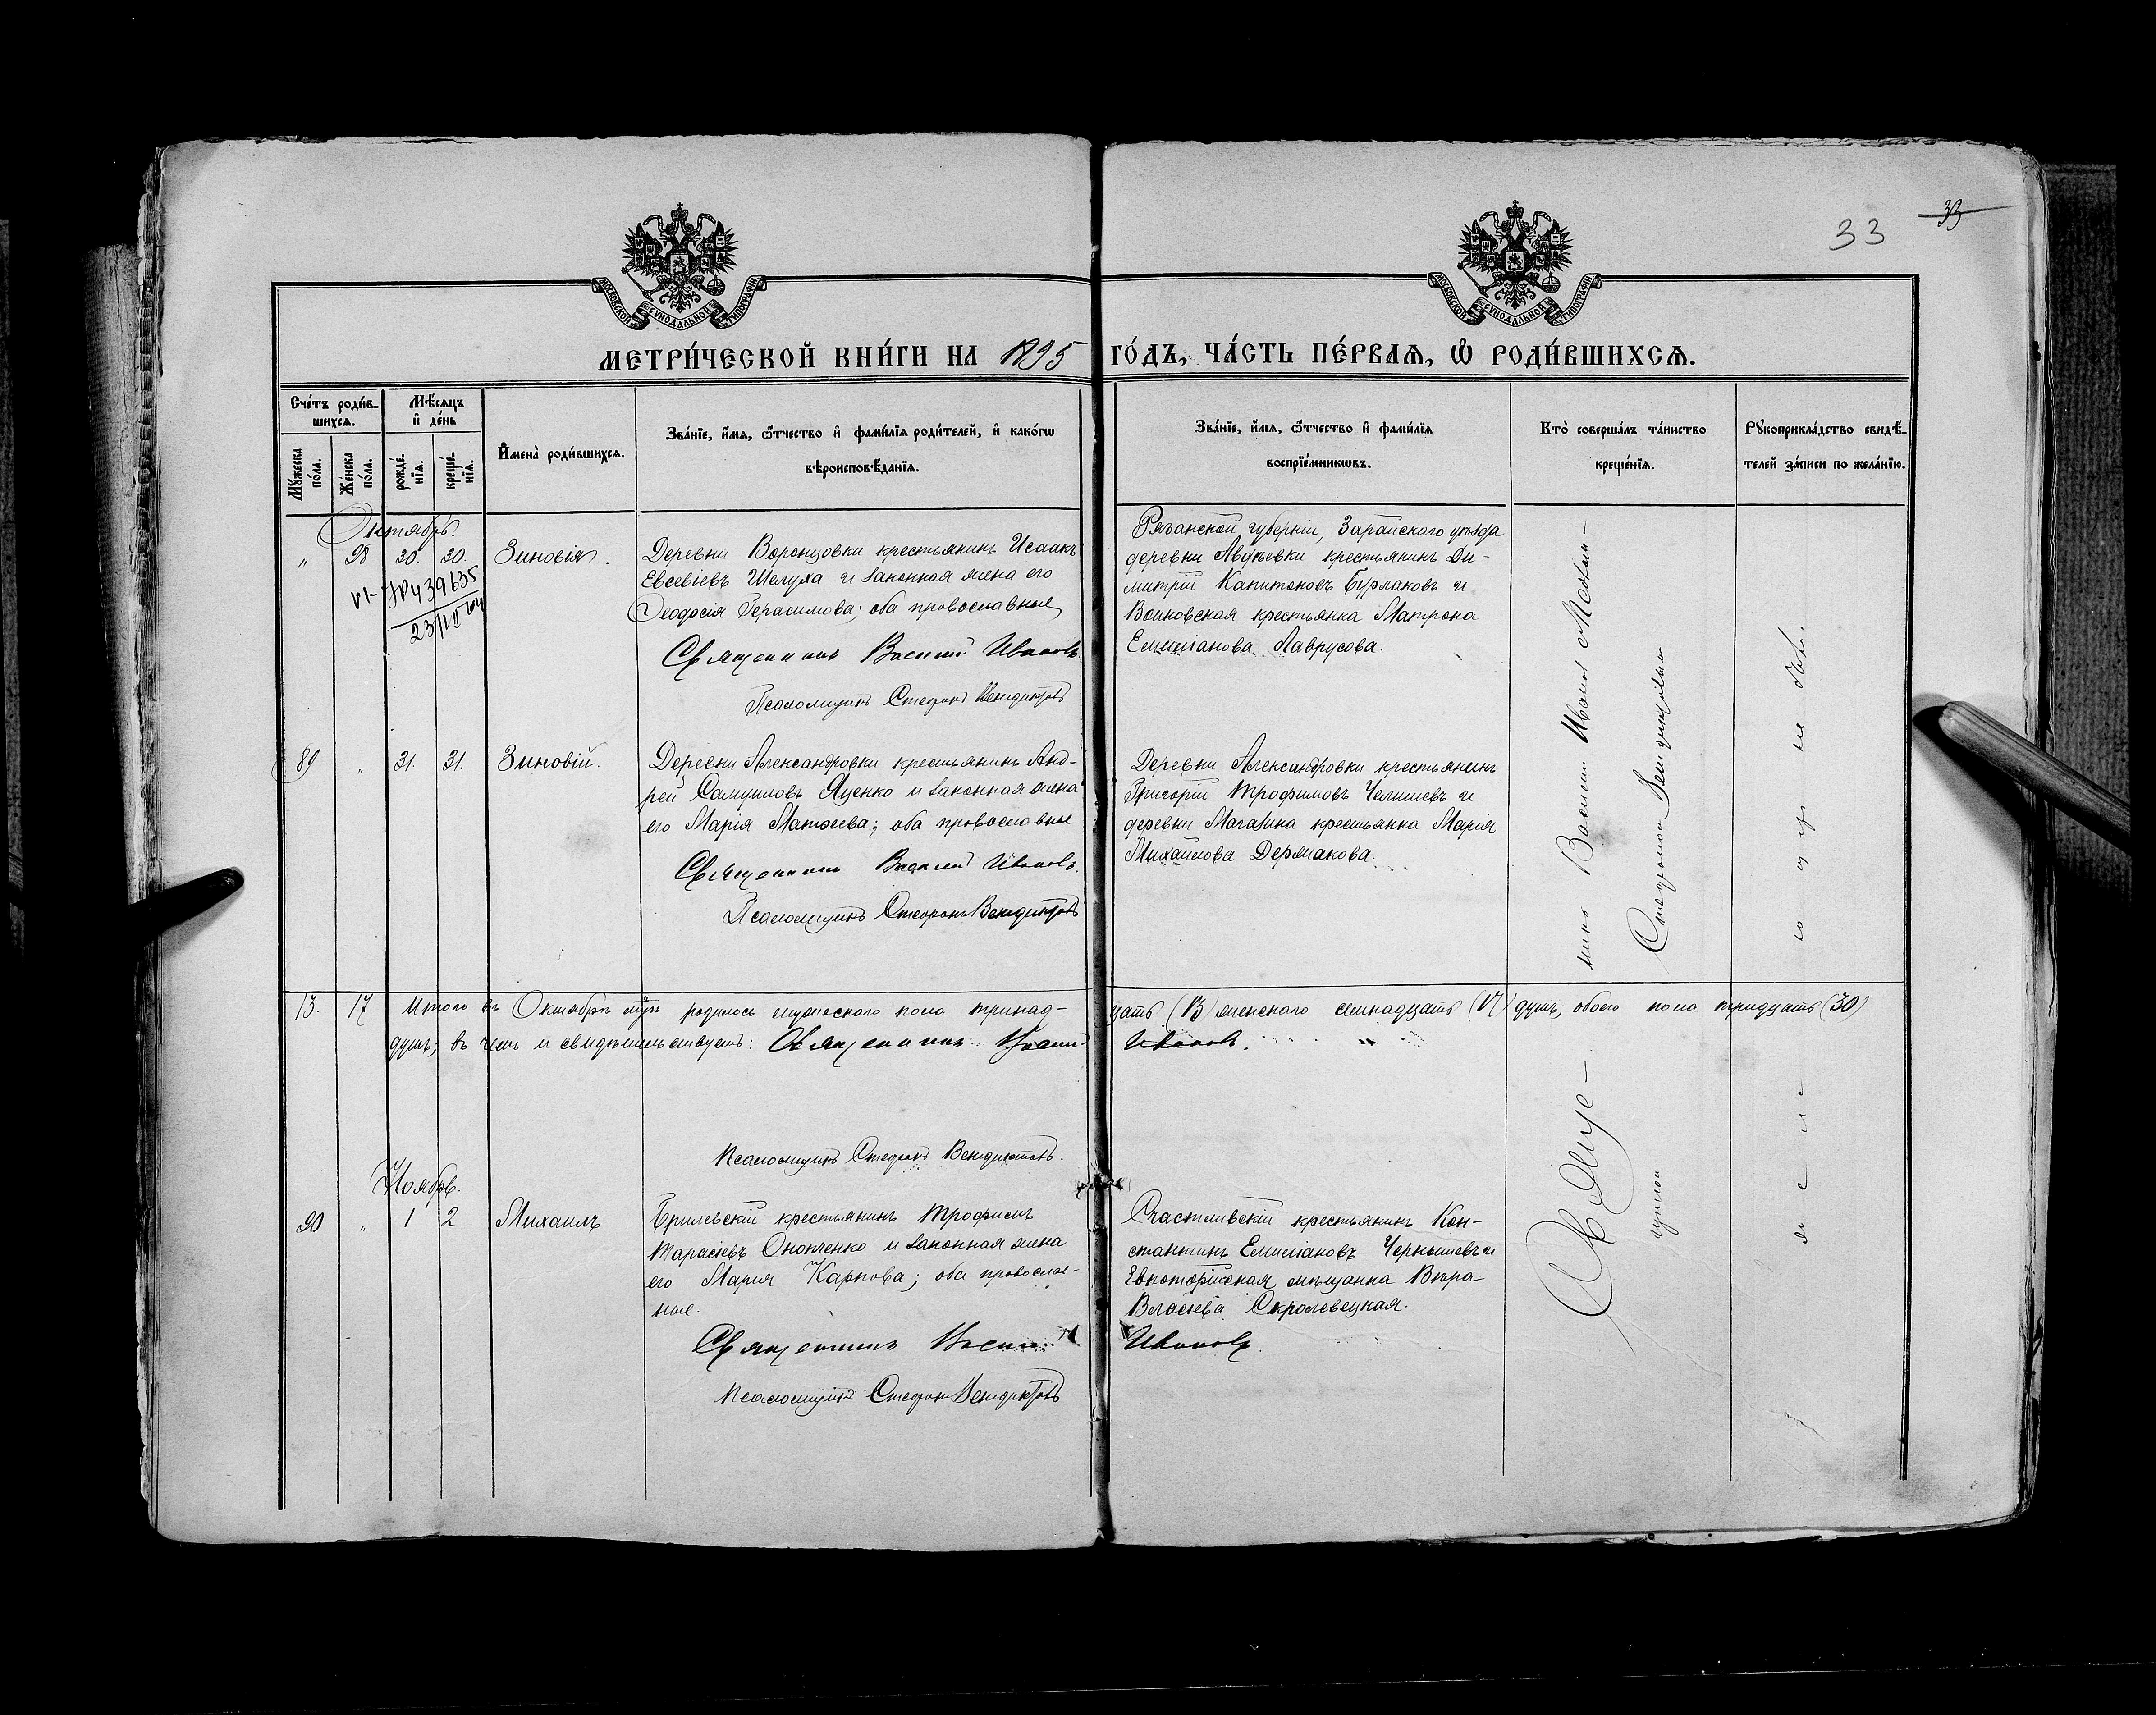 33
33
МОСКОВСКОЙ СѴНОДАЛЬНОЙ ТИПОГРАФІИ
МОСКОВСКОЙ СѴНОДАЛЬНОЙ ТИПОГРАФІИ
МЕТРИ́ЧЕСКОЙ КНИ́ГИ НА 1895 ГО́ДЪ, ЧА́СТЬ ПЕ́РВАѦ, Ѡ҆ РОДИ́ВШИХСѦ.
Сче́тъ роди́в-
шихсѧ.
Мѣ́сѧцъ
и҆ де́нь
Мꙋ́жеска по́ла.
Же́нска по́ла.
рожде́-
нїѧ.
креще́-
нїѧ.
И҆мена̀ роди́вшихсѧ.
Зва́нїе, и҆́мѧ, ѻ҆́тчество и҆ фами́лїѧ роди́телей, и҆ како́гѡ
вѣроисповѣ́данїѧ.
Зва́нїе, и҆́мѧ, ѻ҆́тчество и҆ фами́лїѧ
воспрїе́мникѡвъ.
Кто̀ соверша́лъ та́инство
креще́нїѧ.
Рꙋкоприкла́дство свидѣ́-
телей за́писи по жела́нїю.
Октябрь.
" 98 30. 30. Зиновія.
439635
23/III
Деревни Воронцовки крестьянинъ Исаакъ
Евсевіевъ Шелуха и законная жена его
Ѳеодосія Герасимова; оба православные
Священникъ Василій Ивановъ.
Псаломщикъ Стефанъ Венидиктовъ
Рязанской губерніи, Зарайскаго уѣзда
деревни Авдѣевки крестьянинъ Ди-
митрій Капитоновъ Бурлаковъ и
крестьянка Матрона
Емиліанова Лаврусова.
89 " 31. 31. Зиновій.
Деревни Александровки крестьянинъ Анд-
рей Самуиловъ Яценко и законная жена
его Марія Матѳеева; оба православные
Священникъ Василій Ивановъ.
Псаломщикъ Стефанъ Венидиктовъ
Деревни Александровки крестьянинъ
Григорій Трофимовъ Челышевъ и
деревни Магазинка крестьянка Марія
Михайлова Держакова.
13. 17 Итого въ Октябрѣ родилось мужескаго пола тринад-
цать (13) женскаго семнадцать (17) душъ, обоего пола тридцать (30)
душъ, въ чемъ и свидѣтельствуемъ: Священникъ Василій Ивановъ.
Псаломщикъ Стефанъ Венидиктовъ.
Ноябрь.
90 " 1 2 Михаилъ
Брилевскій крестьянинъ Трофимъ
Тарасіевъ Ононченко и законная жена
его Марія Карпова; оба православ-
ные.
Священникъ Василій Ивановъ.
Псаломщикъ Стефанъ Венидиктовъ
Счастливскій крестьянинъ Кон-
стантинъ Емиліановъ Чернышевъ и
Евпаторійская мѣщанка Вѣра
Власіева Скролевецкая.
Свяще-
никъ Василій Ивановъ
Стефаномъ Венидиктовымъ